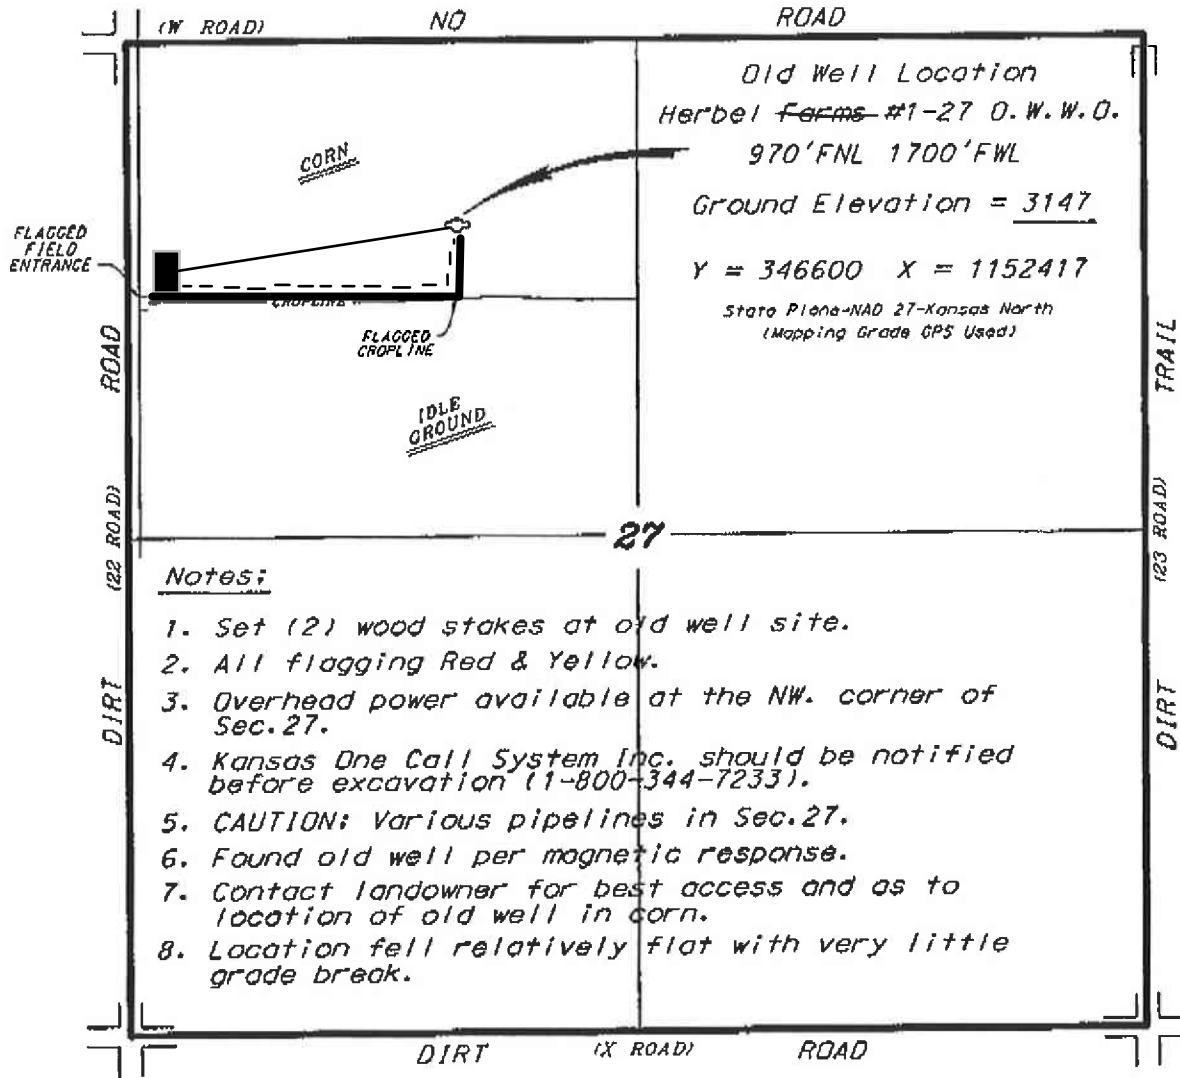 (W ROAD) NO ROAD
Old Well Location
Herbel Farms #1-27 O.W.W.O.
970'FNL 1700'FWL
Ground Elevation = 3147
Y = 346600 X = 1152417
State Plane-NAD 27-Kansas North
(Mapping Grade GPS Used)
CORN
FLAGGED
FIELD
ENTRANCE
CROPLINE
FLAGGED
CROPLINE
IDLE
GROUND
ROAD
(22 ROAD)
DIRT
TRAIL
(23 ROAD)
DIRT
27
Notes:
1. Set (2) wood stakes at old well site.
2. All flagging Red & Yellow.
3. Overhead power available at the NW. corner of
Sec.27.
4. Kansas One Call System Inc. should be notified
before excavation (1-800-344-7233).
5. CAUTION: Various pipelines in Sec.27.
6. Found old well per magnetic response.
7. Contact landowner for best access and as to
location of old well in corn.
8. Location fell relatively flat with very little
grade break.
DIRT (X ROAD) ROAD